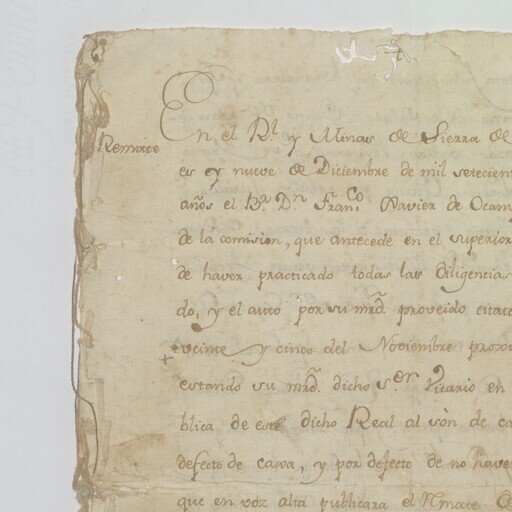 En el Rl. y Minas de Sierra de
Remate
es y nueve de Diciembre de mil setecient
años el Br. Dn. Franco. Xavier de Ocam
de la comision, que antecede en el superior
de haver practicado todas las Diligencias
do, y el auto por su mrd. proveido citato
veinte y cinco del Noviembre proxi
estando su mrd. dicho Sor. Vicario en
blica de este dicho Real al sòn de ca
defecto de caxa, y por defecto de no have
que en voz alta publicara el Rmate